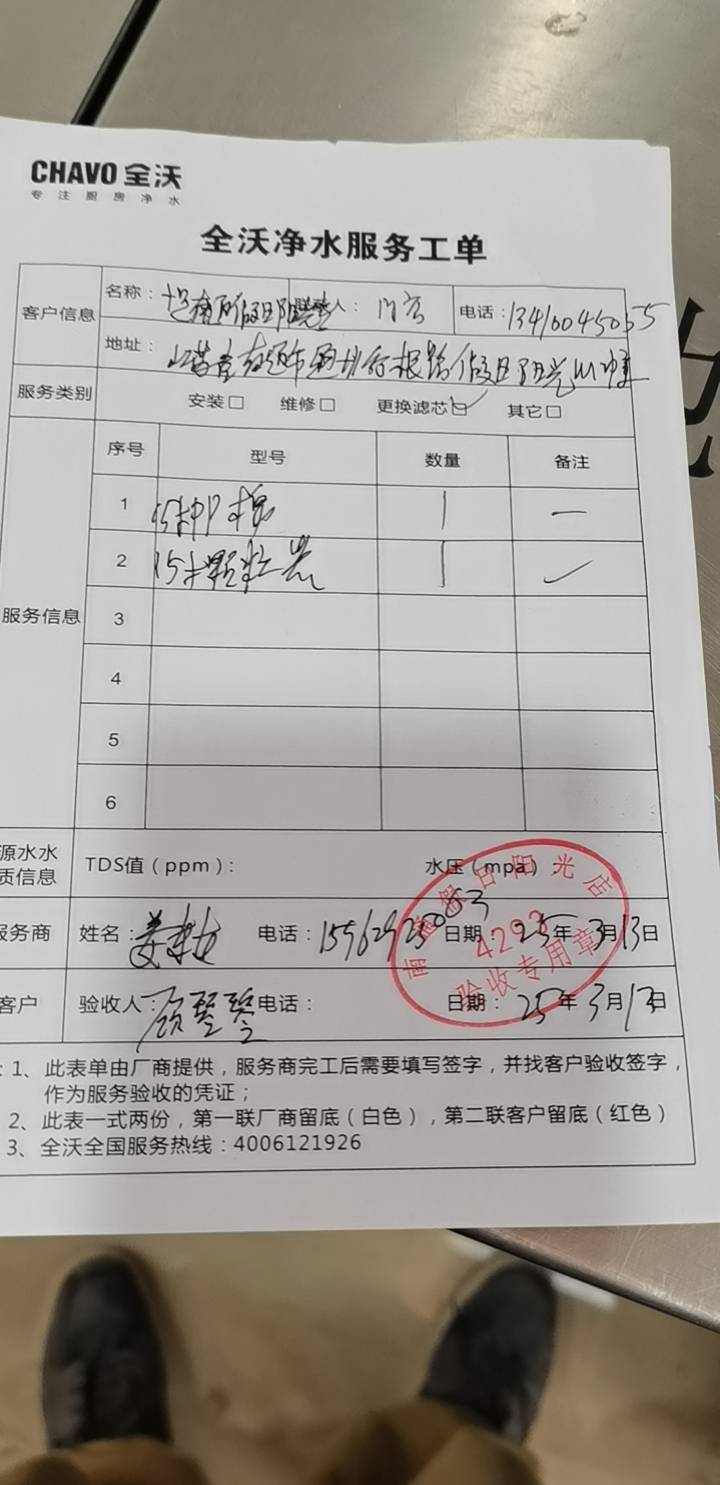 CHAVO 全沃
专注厨房净水
全沃净水服务工单
客户信息
名称: 人: 门店 电话:13410045055
地址:
服务类别 安装□ 维修□ 更换滤芯☑ 其它□
服务信息
序号 型号 数量 备注
1 1 —
2 15寸颗粒炭 1 ✓
3
4
5
6
源水水质信息
TDS值(ppm): 水压(mpa)
服务商 姓名: 电话: 日期 25年3月13日
客户 验收人: 电话: 日期: 25年3月13日
假日阳光店
4293
验收专用章
:1、此表单由厂商提供,服务商完工后需要填写签字,并找客户验收签字,
作为服务验收的凭证;
2、此表一式两份,第一联厂商留底(白色),第二联客户留底(红色)
3、全沃全国服务热线:4006121926